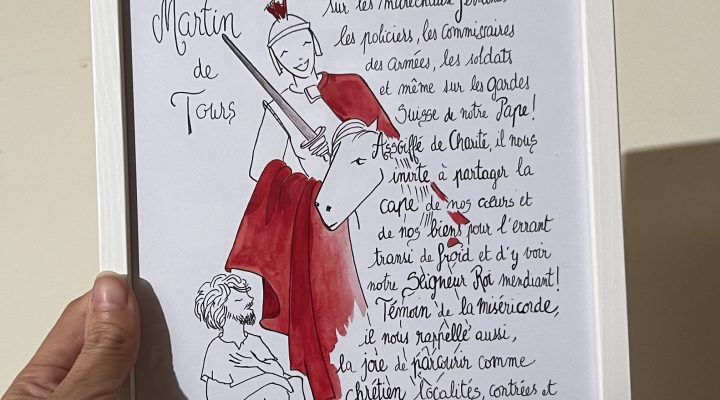 Martin
de
Tours
sur les maréchaux ferrants
les policiers, les commissaires
des armées, les soldats
et même sur les gardes
Suisse de notre Pape!
Assoiffé de Charité, il nous
invite à partager la
cape de nos cœurs et
de nos biens pour l'errant
transi de froid et d'y voir
notre Seigneur Roi mendiant!
Témoin de la miséricorde,
il nous rappelle aussi,
la joie de parcourir comme
chrétien localités, contrées et